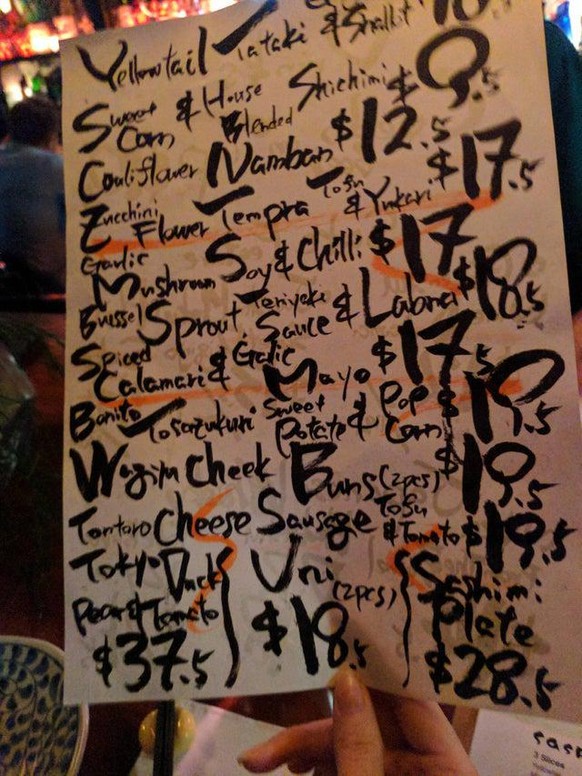 Yellowtail Tataki & Shallot 
Sweet Corn & House Blended Shichimi $9.5
Couliflower Namban $12.5
Zucchini Flower Tempra Tofu & Yukari $17.5
Garlic Mushroom Soy & Chilli $17
Brussel Sprout Teriyaki Sauce & Labna $18.5
Spiced Calamari & Galic Mayo $17.5
Bonito Tosazukuri Sweet Potate & Pop Corn $19.5
Wagiyu Cheek Buns (2pcs) $19.5
Tontoro Cheese Sausage Tofu & Tomato $19.5
Tokyo Duck
Pear & Tomato
$37.5
Uni
(2pcs)
$18.5
Sashimi
Plate
$28.5
3 Slices